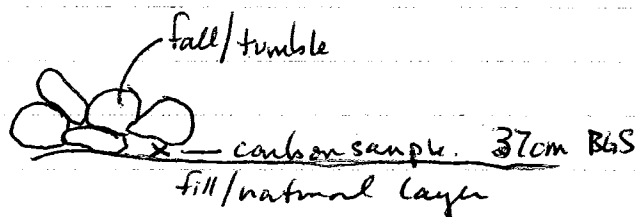 fall/tumble
x — carbon sample. 37cm BGS
fill/natural layer